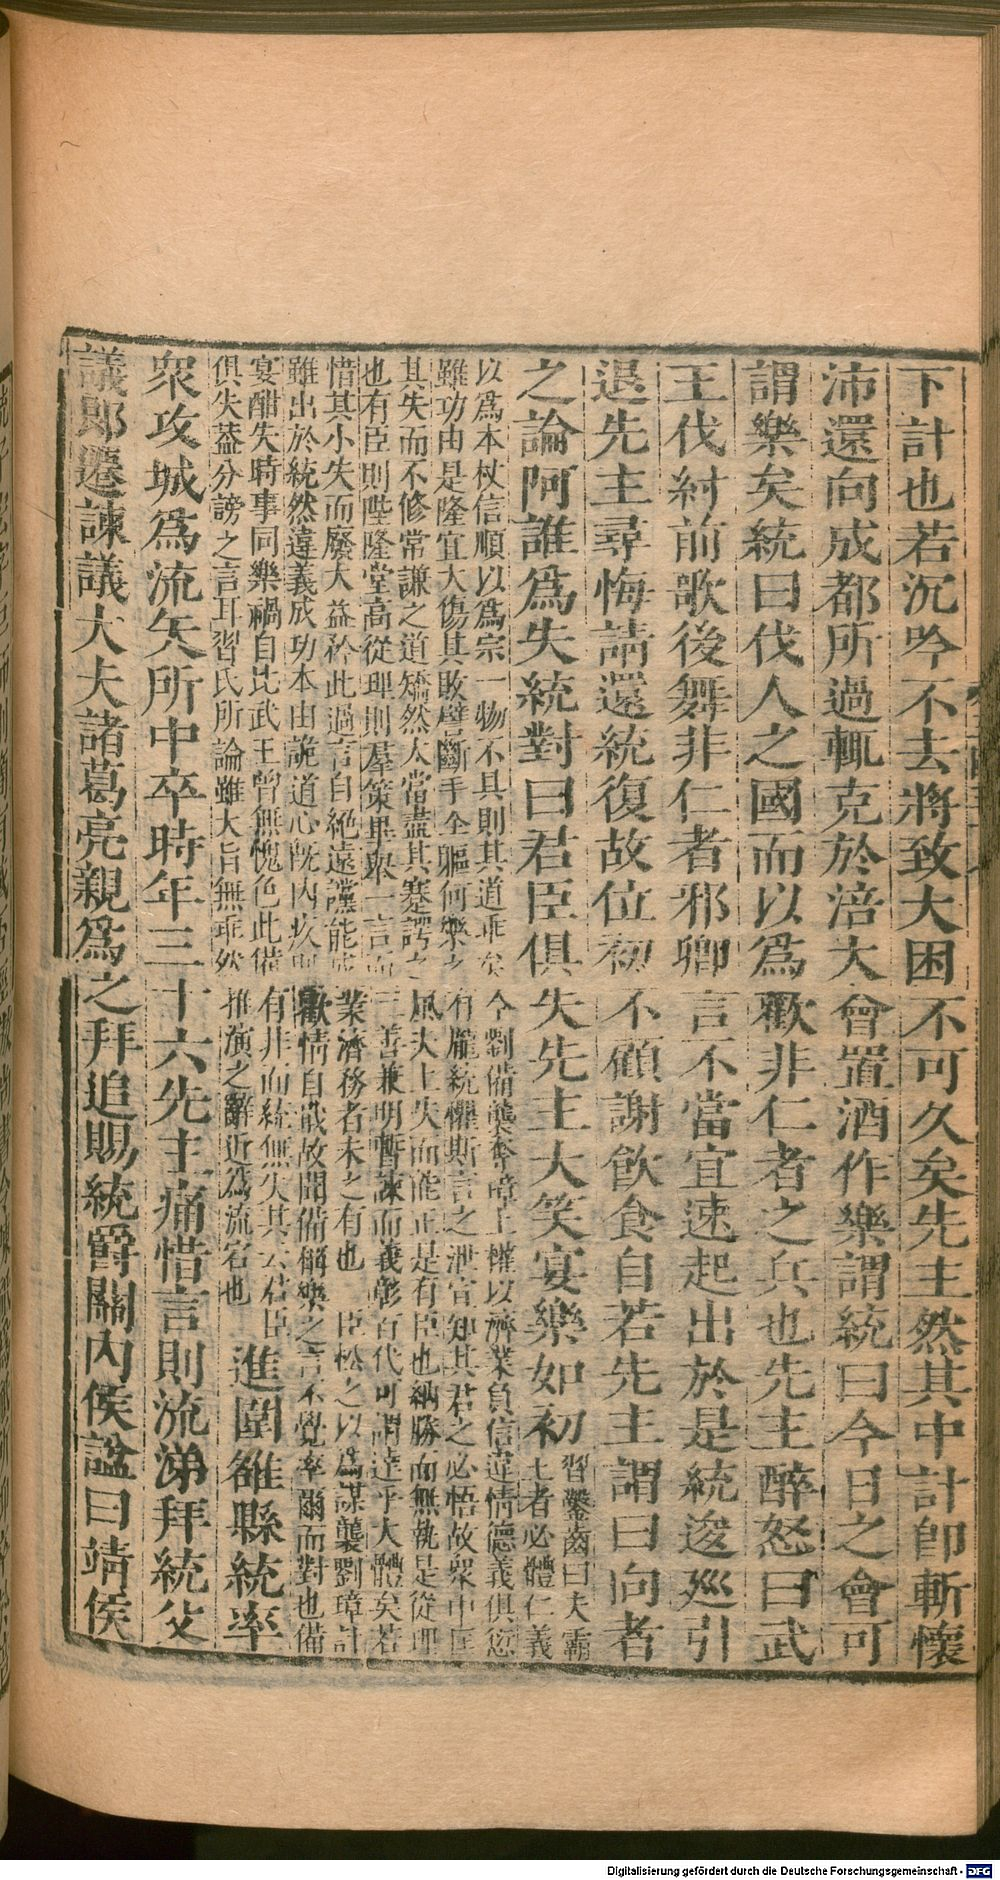 下計也若沉吟不去將致大困不可久矣先主然其中計卽斬懷
沛還向成都所過輒克於涪大會置酒作樂謂統曰今日之會可
謂樂矣統曰伐人之國而以爲歡非仁者之兵也先主醉怒曰武
王伐紂前歌後舞非仁者邪卿言不當宜速起出於是統逡廵引
退先主尋悔請還統復故位初不顧謝飲食自若先主謂曰向者
之論阿誰爲失統對曰君臣俱失先主大笑宴樂如初
習鑿齒曰夫霸
王者必體仁義
以爲本杖信順以爲宗一物不具則其道乖矣今劉備襲奪璋土權以濟業負信違情德義俱愆
雖功由是隆宜大傷其敗譬斷手全軀何樂之有龐統懼斯言之泄宣知其君之必悟故衆中匡
其失而不修常謙之道矯然太當盡其蹇諤之風夫上失而能正是有臣也納勝而無執是從理
也有臣則陛隆堂高從理則羣策畢舉一言而三善兼明暫諫而義彰百代可謂達乎大體矣若
惜其小失而廢大益矜此過言自絕遠讜能成業濟務者未之有也　臣松之以爲謀襲劉璋計
雖出於統然違義成功本由詭道心旣內疚則歡情自戢故聞備稱樂之言不覺率爾而對也備
宴酣失時事同樂禍自比武王曾無愧色此備有非而統無失其云君臣
俱失葢分謗之言耳習氏所論雖大旨無乖然推演之辭近爲流宕也
進圍雒縣統率
衆攻城爲流矢所中卒時年三十六先主痛惜言則流涕拜統父
議郎遷諫議大夫諸葛亮親爲之拜追賜統爵關內侯諡曰靖侯
Digitalisierung gefördert durch die Deutsche Forschungsgemeinschaft - DFG